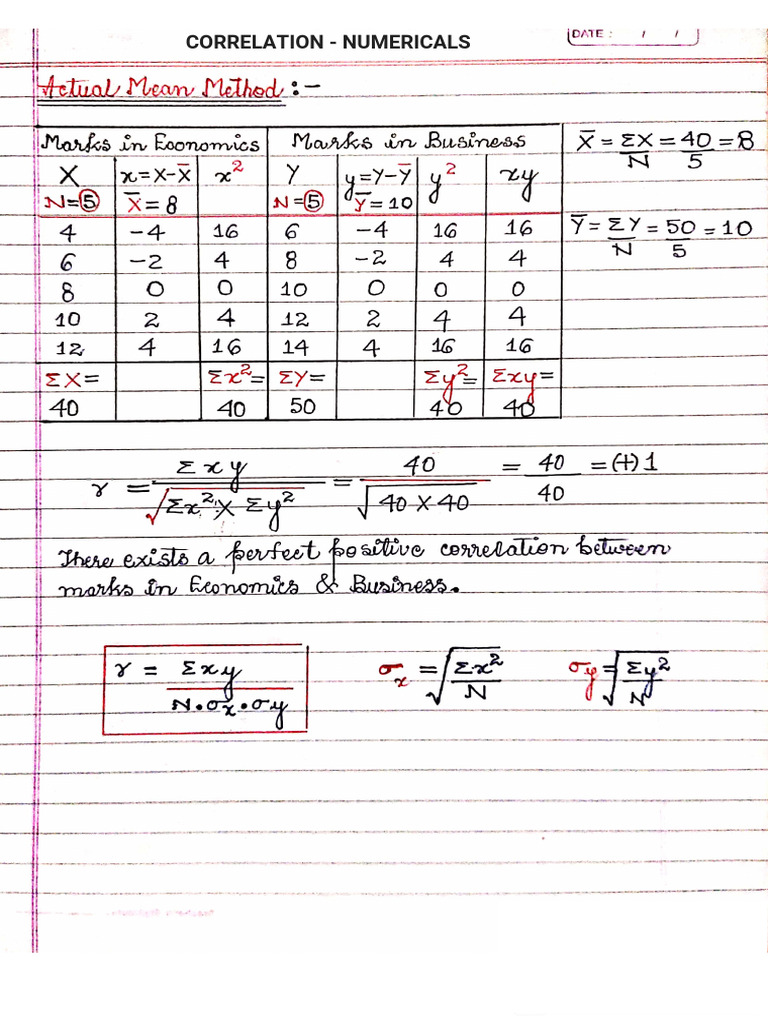 CORRELATION - NUMERICALS
DATE : / /
Actual Mean Method :-
Marks in Economics | Marks in Business
X | x=X-X̄ | x² | Y | y=Y-Ȳ | y² | xy
N=5 | X̄=8 | N=5 | Ȳ=10
4 | -4 | 16 | 6 | -4 | 16 | 16
6 | -2 | 4 | 8 | -2 | 4 | 4
8 | 0 | 0 | 10 | 0 | 0 | 0
10 | 2 | 4 | 12 | 2 | 4 | 4
12 | 4 | 16 | 14 | 4 | 16 | 16
ΣX= | Σx²= | ΣY= | Σy²= | Σxy=
40 | 40 | 50 | 40 | 40
X̄ = ΣX/N = 40/5 = 8
Ȳ = ΣY/N = 50/5 = 10
r = Σxy/√(Σx² × Σy²) = 40/√(40 × 40) = 40/40 = (+)1
There exists a perfect positive correlation between
marks in Economics & Business.
r = Σxy/(N·σx·σy) σx = √(Σx²/N) σy = √(Σy²/N)